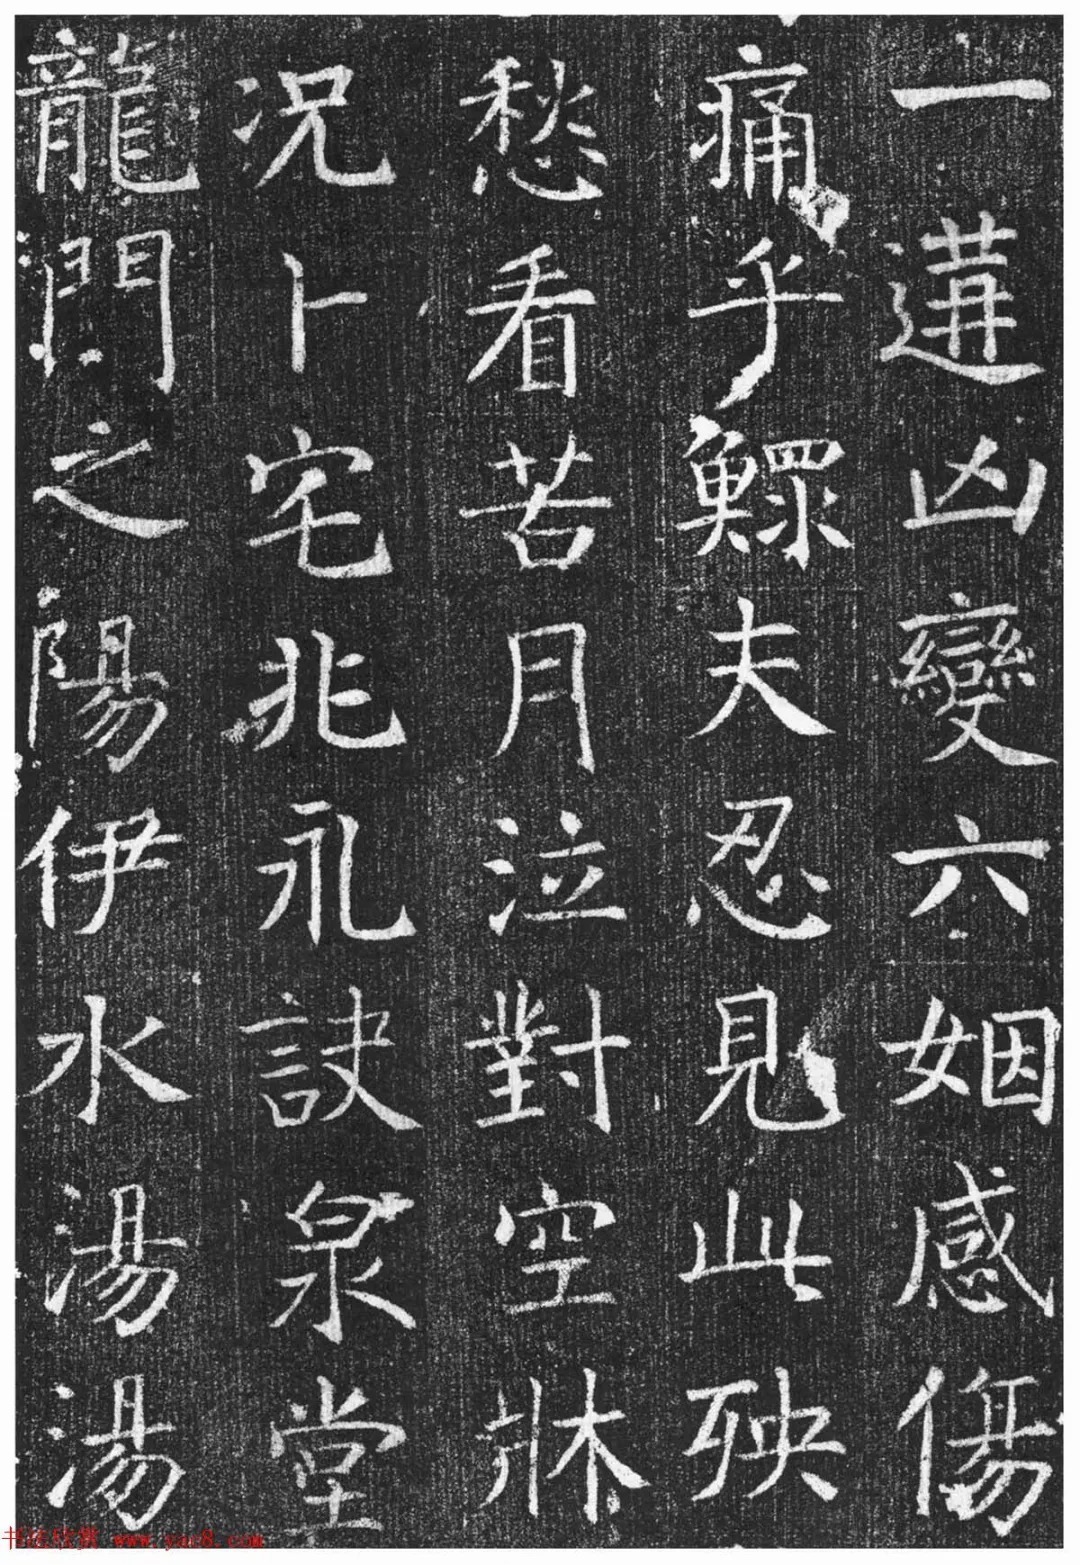 一遘凶變六姻感傷
痛乎鰥夫忍見此殃
愁看苦月泣對空牀
況卜宅兆永訣泉堂
龍門之陽伊水湯湯
书法欣赏 www.yac8.com